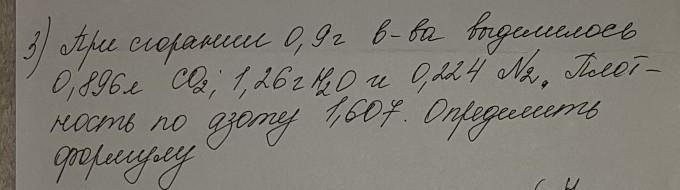 3) При сгорании 0,9г в-ва выделилось
0,896л CO₂; 1,26г H₂O и 0,224 N₂. Плот-
ность по азоту 1,607. Определить
формулу